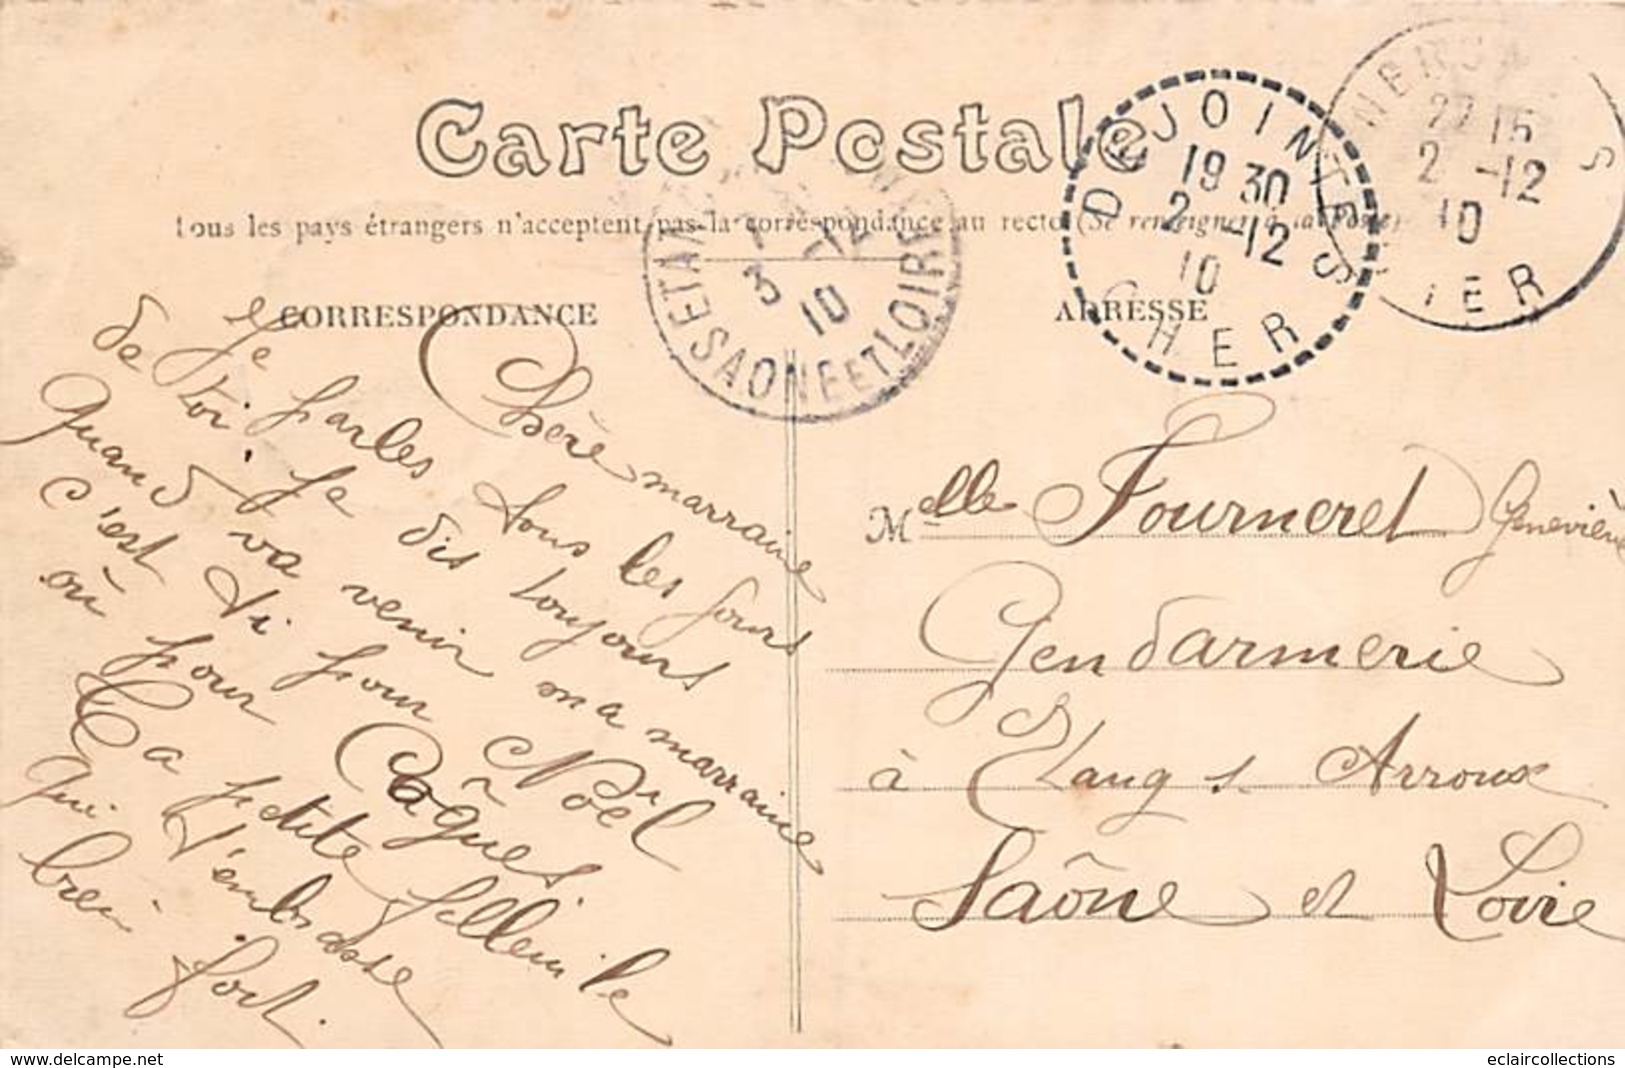 Carte Postale
Tous les pays étrangers n'acceptent pas la correspondance au recto (Se renseigner à la Poste)
CORRESPONDANCE
ADRESSE
JOINTES
19 30
2 -12
10
CHER
22 15
2 -12
10
CHER
ETAN
3 -12
10
SAONE ET LOIRE
Chère marraine
Je parles tous les jours
de toi, je dis toujours
Quand va venir ma marraine
c'est ti pour Noël
où pour Pâques.
Ta petite filleule
qui t'embrasse
bien fort.
Melle Fourneret Geneviève
Gendarmerie
à Etang s. Arroux
Saône et Loire
www.delcampe.net
eclaircollections